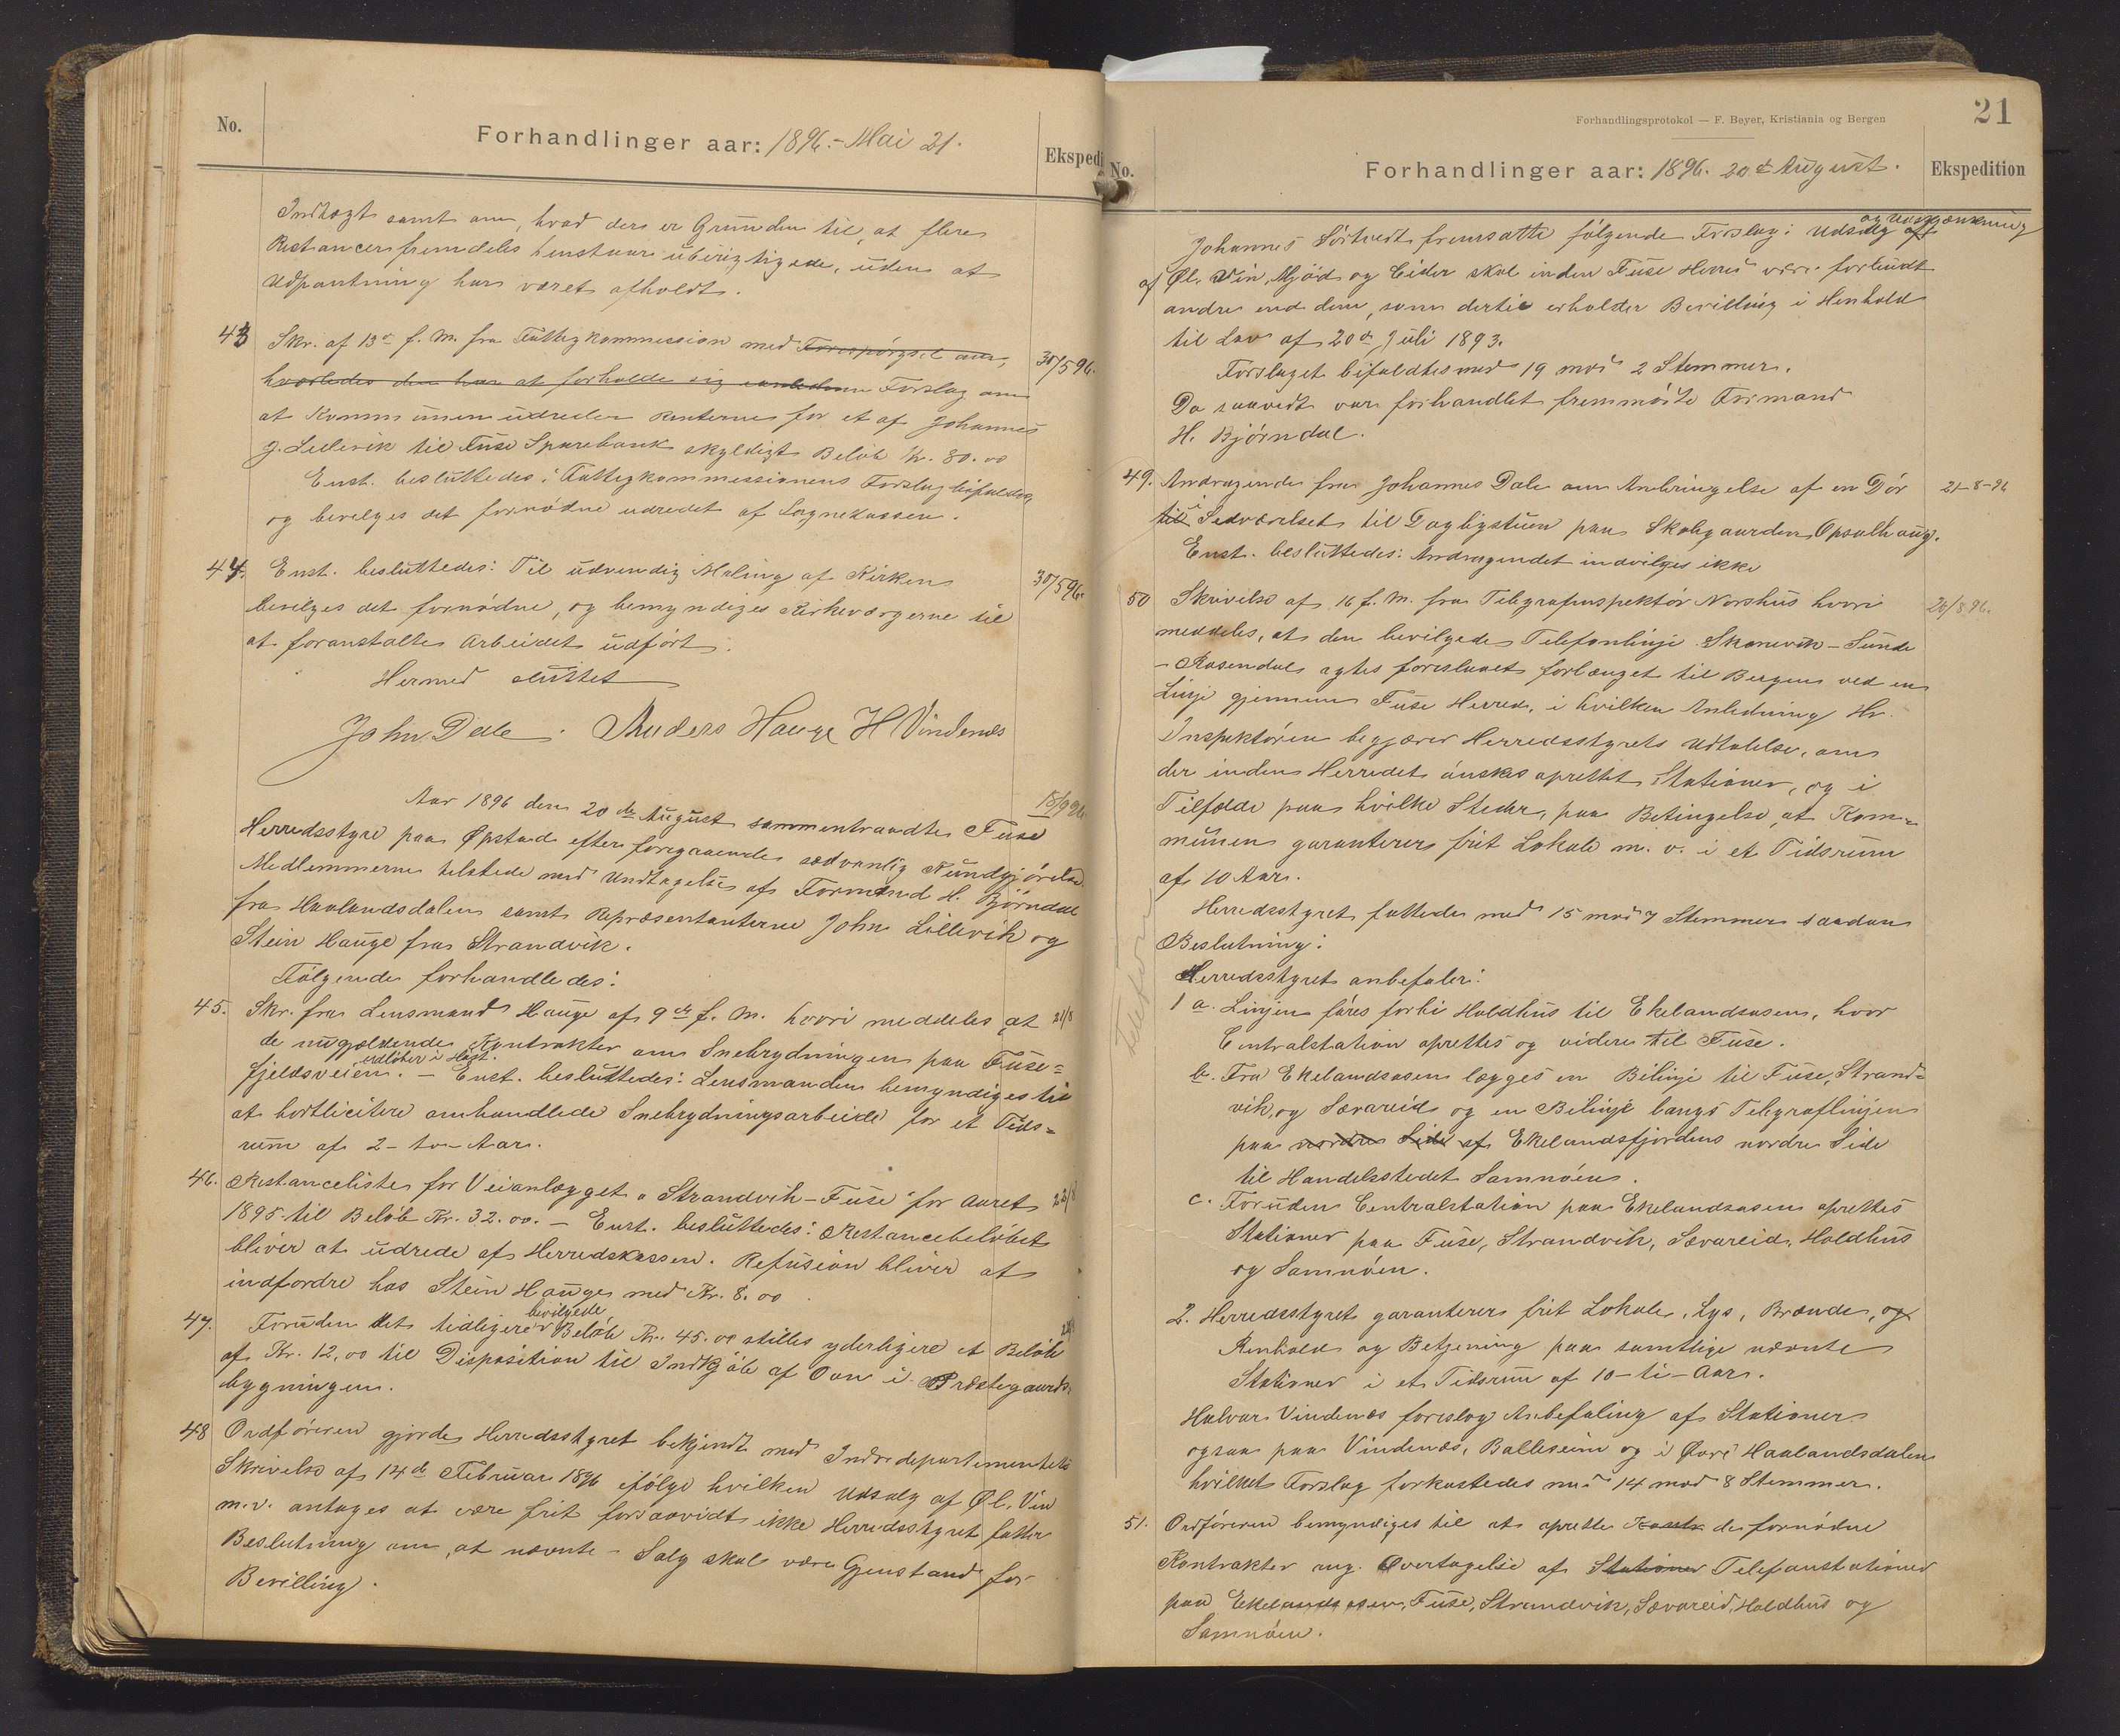 No.
Forhandlinger aar: 1896.- Mai 21.
Ekspedi
Indtægt samt om, hvad der er Grunden til, at flere
Restancer fremdeles henstaar uberigtigede, uden at
Udpantning har været afholdt.
43 Skr. af 13de f. M. fra Fattigkommission med Forespørgsel om,
30/5 96.
hvorledes den har at forholde sig Forslag om
at Kommunen udreder Renterne for et af Johannes
J. Lillevik til Fuse Sparebank skyldigt Beløb Kr. 80.00
Enst. besluttedes: Fattigkommissionens Forslag bifaldes
og bevilges det fornødne udredet af Sognekassen.
44. Enst. besluttedes: Til udvendig Maling af Kirken
30/5 96.
bevilges det fornødne, og bemyndiges Kirkeværgerne til
at foranstalte Arbeidet udført.
Hermed sluttet
John Dale. Anders Hauge H Vindenes
Aar 1896 den 20de August sammentraadte Fuse
18/9 96
Herredsstyre paa Øpstad efter foregaaende sædvanlig Kundgjørelse
Medlemmerne tilstede med Undtagelse af Formand H. Bjørndal
fra Haalandsdalen samt Repræsentanterne John Lillevik og
Stein Hauge fra Strandvik.
Følgende forhandledes:
45. Skr. fra Lensmand Hauge af 9de f. M. hvori meddeles, at
21/8
de nugjældende Kontrakter om Snebrydningen paa Fuse=
udløber i Høst.
fjeldsveien. - Enst. besluttedes: Lensmanden bemyndiges til
at bortlicitere omhandlede Snebrydningsarbeide for et Tids=
rum af 2 - to - Aar.
46. Restanceliste for Veianlægget "Strandvik - Fuse" for Aaret
22/8
1895 til Beløb Kr. 32.00. - Enst. besluttedes: Restancebeløbet
bliver at udrede af Herredskassen. Refusion bliver at
indfordre hos Stein Hauge med Kr. 8.00
bevilgede
47. Foruden det tidligere Beløb Kr. 45.00 stilles yderligere et Beløb
af Kr. 12,00 til Disposition til Indkjøb af Ovn i Præstegaards-
bygningen.
48 Ordføreren gjorde Herredsstyret bekjendt med Indredepartementets
Skrivelse af 14de Februar 1896 ifølge hvilken Udsalg af Øl, Vin
m.v. antages at være frit forsaavidt ikke Herredsstyret fatter
Beslutning om, at nævnte Salg skal være Gjenstand for
Bevilling.
21
Forhandlingsprotokol — F. Beyer, Kristiania og Bergen
No.
Forhandlinger aar: 1896. 20de August.
Ekspedition
og Udskjænkning
Johannes Sørtvedt fremsatte følgende Forslag: Udsalg af
af Øl, Vin, Mjød og Cider skal inden Fuse Herred være forbudt
andre end dem, som dertil erholder Bevilling i Henhold
til Lov af 20de Juli 1893.
Forslaget bifaldtes med 19 mod 2 Stemmer.
Da saavidt var forhandlet fremmødte Formand
H. Bjørndal.
49. Andragende fra Johannes Dale om Anbringelse af en Dør
21-8-96
til Sedværelset til Dagligstuen paa Skolegaarden Opsalhaug.
Enst. besluttedes: Andragendet indvilges ikke
50 Skrivelse af 16 f. M. fra Telegrafinspektør Norshus hvori
26/8 96.
meddeles, at den bevilgede Telefonlinje Skonevik - Sunde
- Rosendal agtes foreslaaet forlænget til Bergen ved en
Linje gjennem Fuse Herred, i hvilken Anledning Hr.
Inspektøren begjærer Herredsstyrets Udtalelse, om
der inden Herredet ønskes oprettet Stationer, og i
Tilfælde paa hvilke Steder, paa Betingelse, at Kom=
munen garanterer frit Lokale m. v. i et Tidsrum
af 10 Aar.
Herredsstyret fattede med 15 mod 7 Stemmer saadan
Beslutning:
Telefon
Herredsstyret anbefaler:
1 a. Linjen føres forbi Holdhus til Ekelandsosen, hvor
Centralstation oprettes og videre til Fuse.
b. Fra Ekelandsosen lægges en Bilinje til Fuse, Strand=
vik, og Sævareid og en Bilinje langs Telegraflinjen
paa nordre Side af Ekelandsfjordens nordre Side
til Handelsstedet Samnøen.
c. Foruden Centralstation paa Ekelandsosen oprettes
Stationer paa Fuse, Strandvik, Sævareid, Holdhus
og Samnøen.
2. Herredsstyret garanterer frit Lokale, Lys, Brænde, og
Renhold og Betjening paa samtlige nævnte
Stationer i et Tidsrum af 10 - ti - Aar.
Halvor Vindenes foreslog Anbefaling af Stationer
ogsaa paa Vindenæs, Balleseim og i Øvre Haalandsdalen
hvilket Forslag forkastedes med 14 mod 8 Stemmer.
51. Ordføreren bemyndiges til at oprette de fornødne
Kontrakter ang. Overtagelse af Stationer Telefonstationer
paa Ekelandsosen, Fuse, Strandvik, Sævareid, Holdhus og
Samnøen.